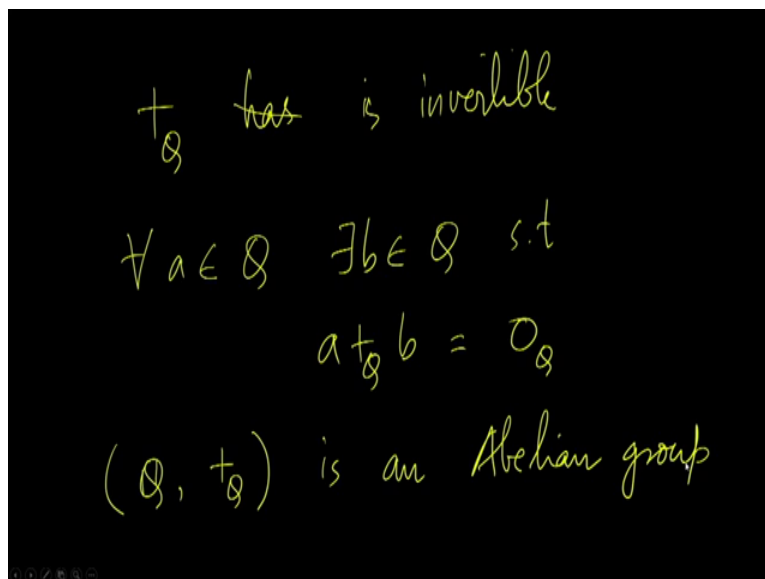 +_Q has is invertible
∀ a ∈ Q ∃b ∈ Q s.t
a +_Q b = 0_Q
(Q, +_Q) is an Abelian group